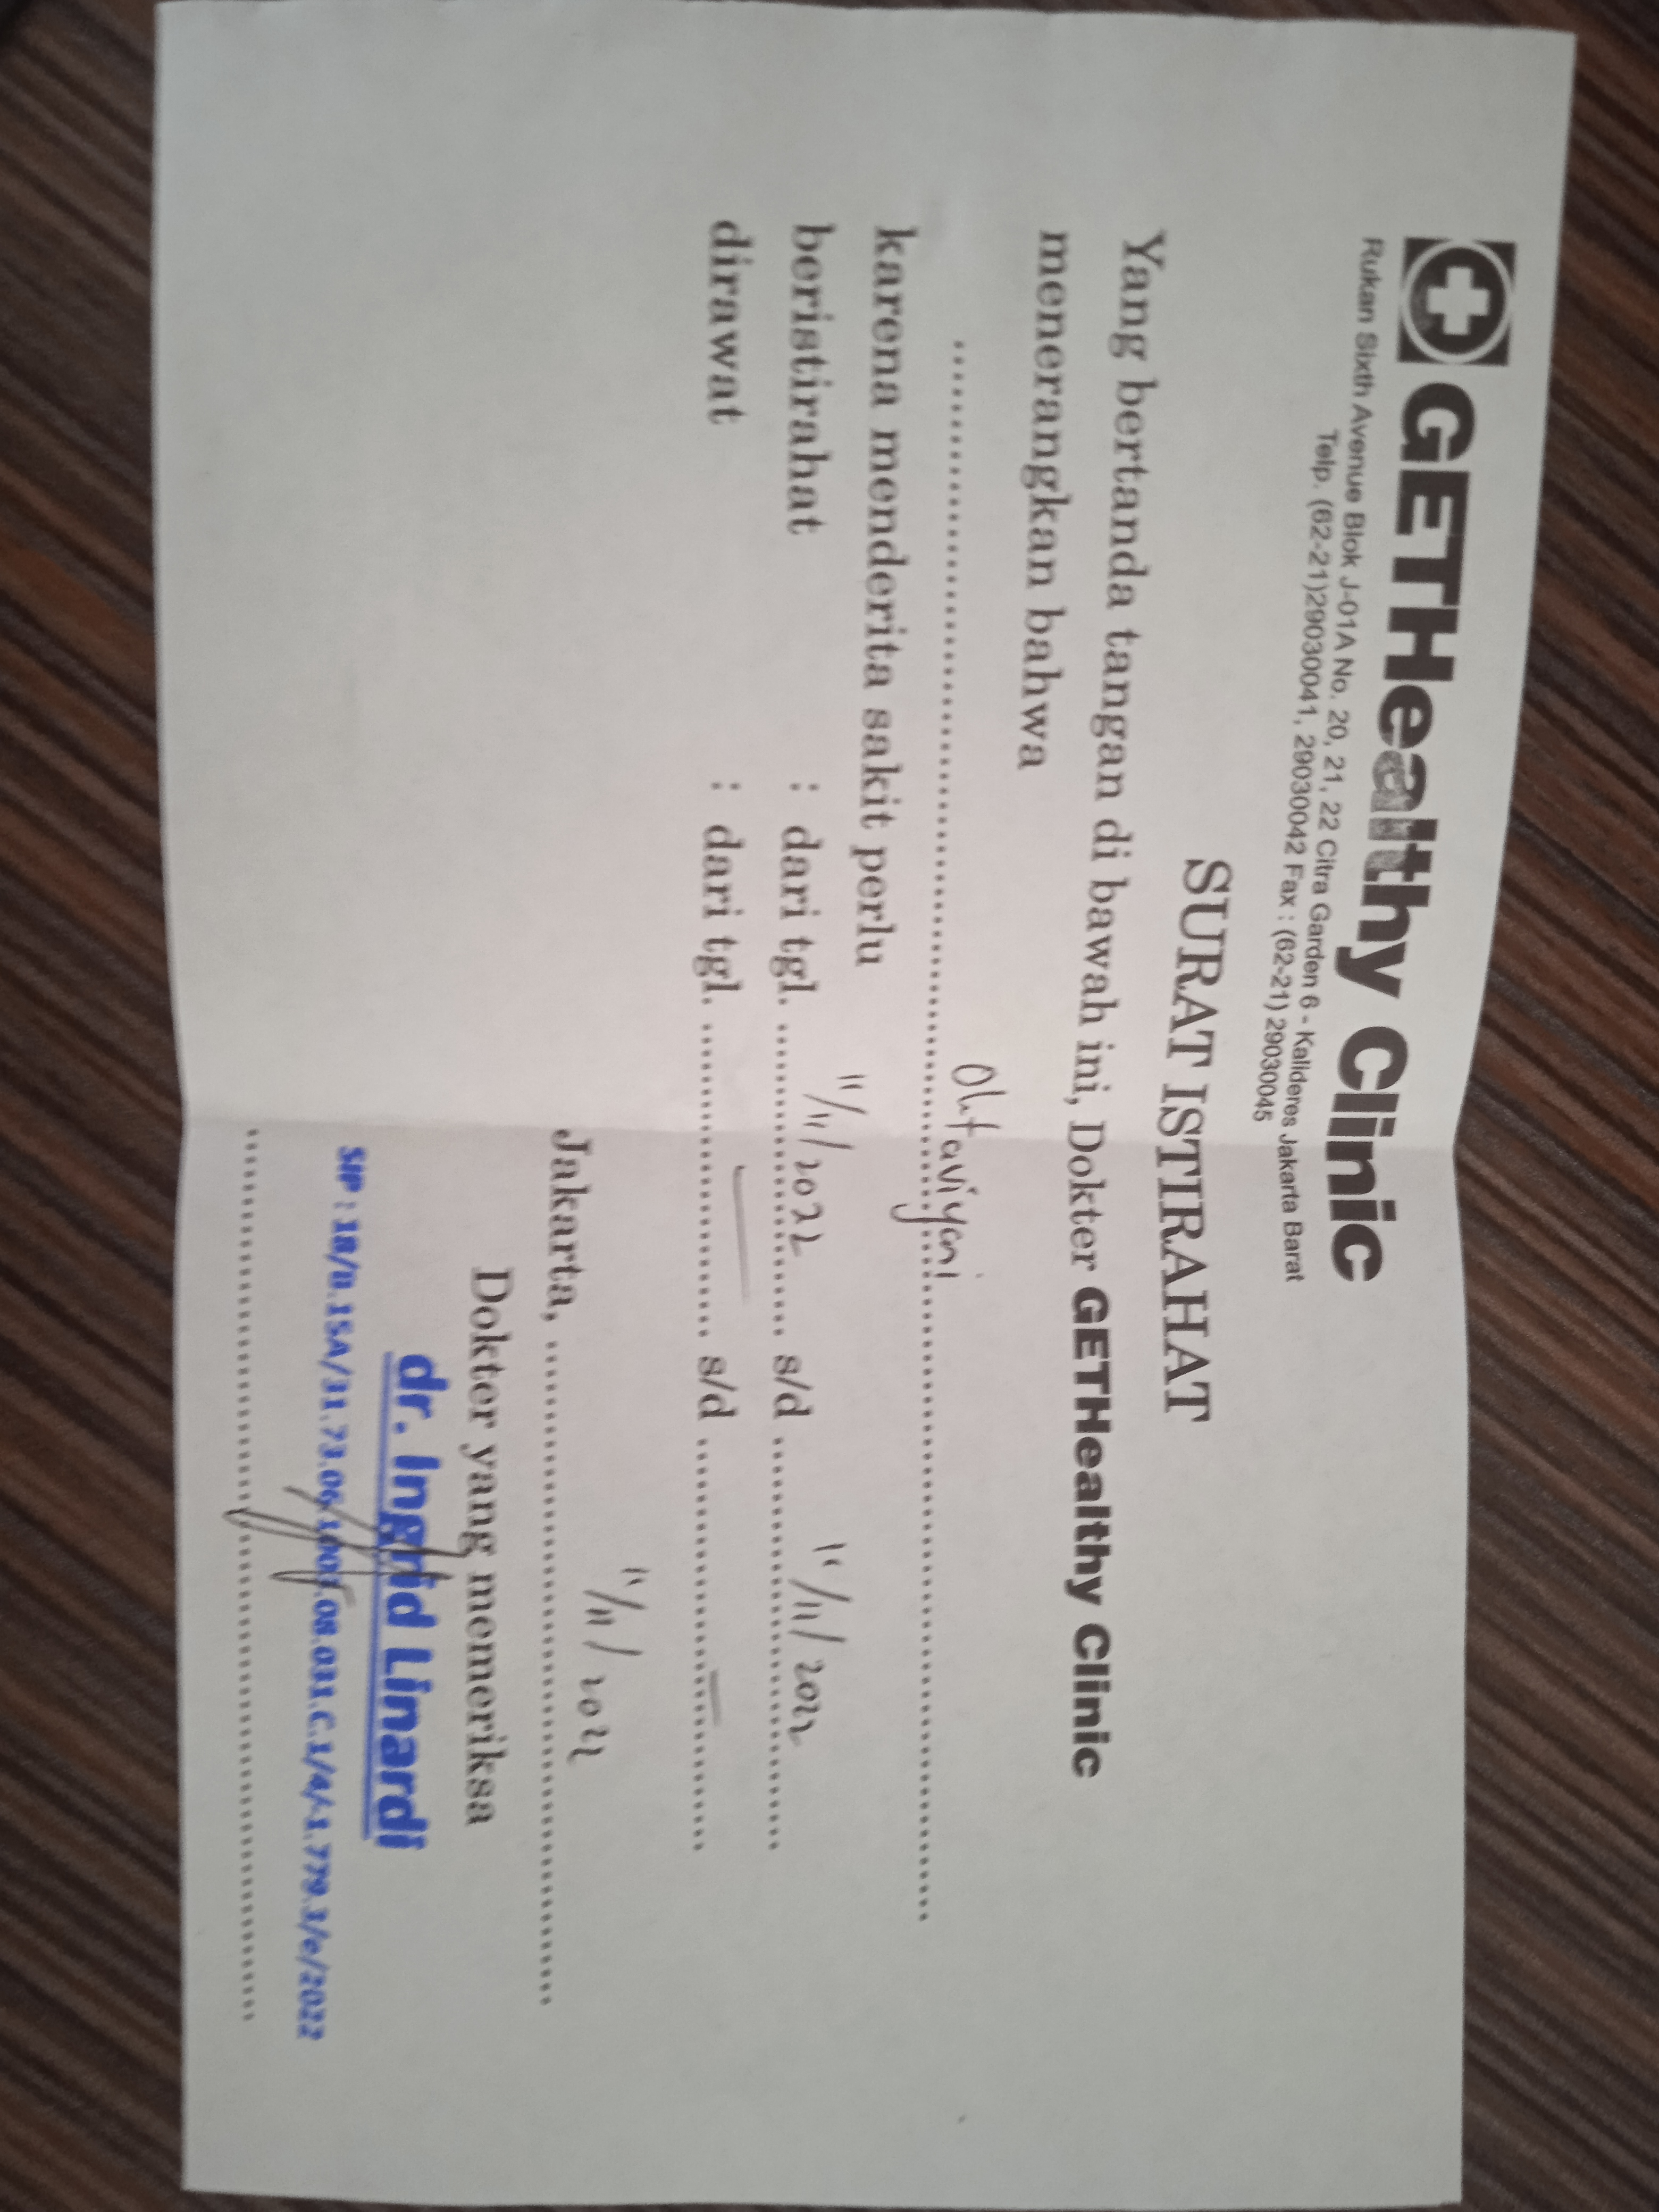 GETHealthy Clinic
Rukan Sixth Avenue Blok J-01A No. 20, 21, 22 Citra Garden 6 - Kalideres Jakarta Barat
Telp. (62-21)29030041, 29030042 Fax : (62-21) 29030045
SURAT ISTIRAHAT
Yang bertanda tangan di bawah ini, Dokter GETHealthy Clinic
menerangkan bahwa
Oktaviyani
karena menderita sakit perlu
beristirahat : dari tgl. 11/11/2022 s/d 11/11/2022
dirawat : dari tgl. — s/d —
Jakarta, 11/11/2022
Dokter yang memeriksa
dr. Ingrid Linardi
SIP : 18/B.15A/31.73.06.1003.08.031.C.1/4/-1.779.3/e/2022